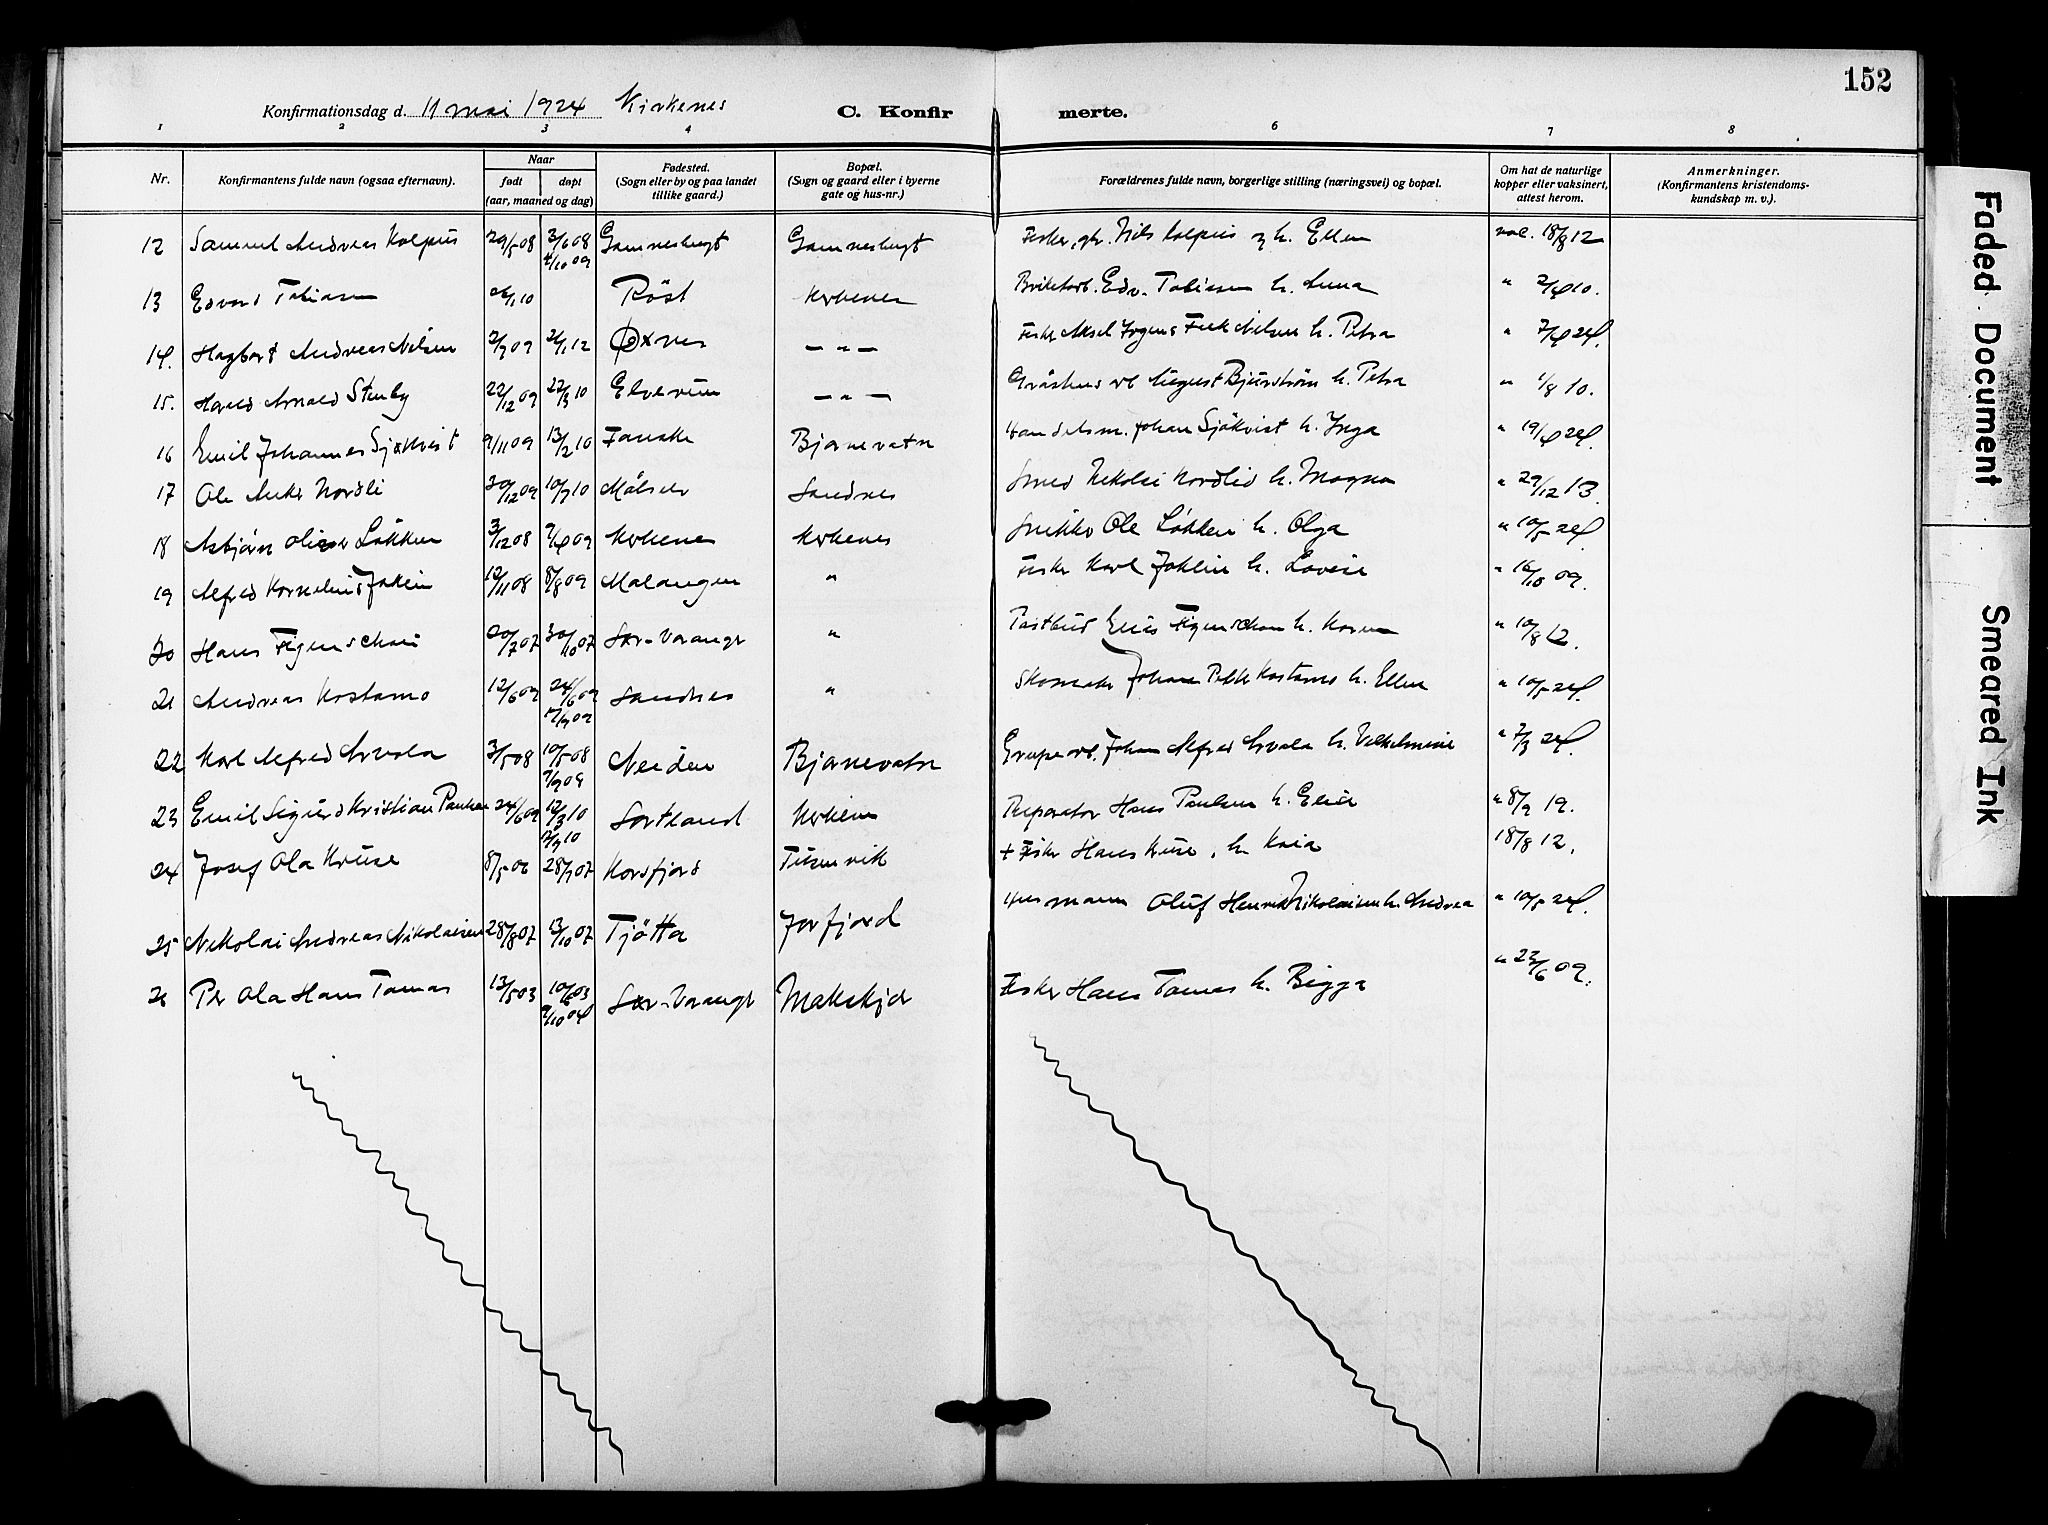 152
Konfirmationsdag d. 11 mai 1924 Kirkenes C. Konfirmerte.
1 2 3 4 6 7 8
Nr. Konfirmantens fulde navn (ogsaa efternavn). Naar født døpt (aar, maaned og dag) Fødested. (Sogn eller by og paa landet tillike gaard.) Bopæl. (Sogn og gaard eller i byerne gate og hus-nr.) Forældrenes fulde navn, borgerlige stilling (næringsvei) og bopæl. Om hat de naturlige kopper eller vaksinert, attest herom. Anmerkninger. (Konfirmantens kristendomskundskap m. v.).
12 Samuel Andreas Kolpus 29/5 08 3/6 08 Gamnesbugt Gamnesbugt Fisker, gbr. Nils Kolpus og h. Ellen vac. 18/8 12
4/10 09
13 Edvard Tobiassen 10 Röst Kirkenes Edv. Tobiassen h. Anna " 2/4 10.
14. Hagbart Andreas Nilsen 2/9 09 21/1 12 Øxnes — " — Fisker Aksel Nilsen h. Petra " 7/4 24.
15. Harald Arnold Stenby 22/12 09 27/3 10 Elverum — " — August Bjurström h. Petra " 1/8 10.
16 Emil Johannes Sjökvist 9/11 09 13/2 10 Fauske Bjørnevatn Handelsm. Johan Sjökvist h. Inga " 19/4 24.
17 Ole Nordli 30/12 09 10/7 10 Målselv Sandnes Smed Nikolai Nordlid h. Magna " 29/12 13.
18 Asbjørn Oliver Løkken 3/12 08 9/4 09 Kirkenes Kirkenes Snikker Ole Løkken h. Olga " 10/5 24
19 Alfred Kornelius Jaklin 12/11 08 8/8 09 Malangen " Fisker Karl Jaklin h. Lovise " 16/10 09.
20 Hans Figenschou 20/7 07 30/10 07 Sør-Varanger " Postbud Elias Figenschou h. Karen " 10/8 12.
21 Andreas Kostamo 12/6 09 24/6 09 Sandnes " Skomaker Johan Petter Kostamo h. Ellen " 10/5 24.
12/9 09
22 Karl Alfred Arvola 3/5 08 10/5 08 Neiden Bjørnevatn Grupearb. Johan Alfred Arvola h. Vilhelmine " 7/3 24.
7/9 09
23 Emil Sigurd Kristian Paulsen 24/6 09 12/3 10 Sortland Kirkenes Reparatør Hans Paulsen h. Elise " 8/9 19.
7/9 10
24 Josef Ola Kruse 8/5 06 28/7 07 Korsfjord + Fisker Hans Kruse, h. Kaia 18/8 12.
25 Nikolai Andreas Nikolaisen 28/8 07 13/10 07 Tjötta Jarfjord Husmann Oluf Henrik Nikolaisen h. Andrea " 10/5 24.
26 Per Ola Hans Tomas 13/5 03 10/6 03 Sør-Varanger Fisker Hans Tomas h. Bigga " 23/6 09.
9/10 04
Faded Document
Smeared Ink